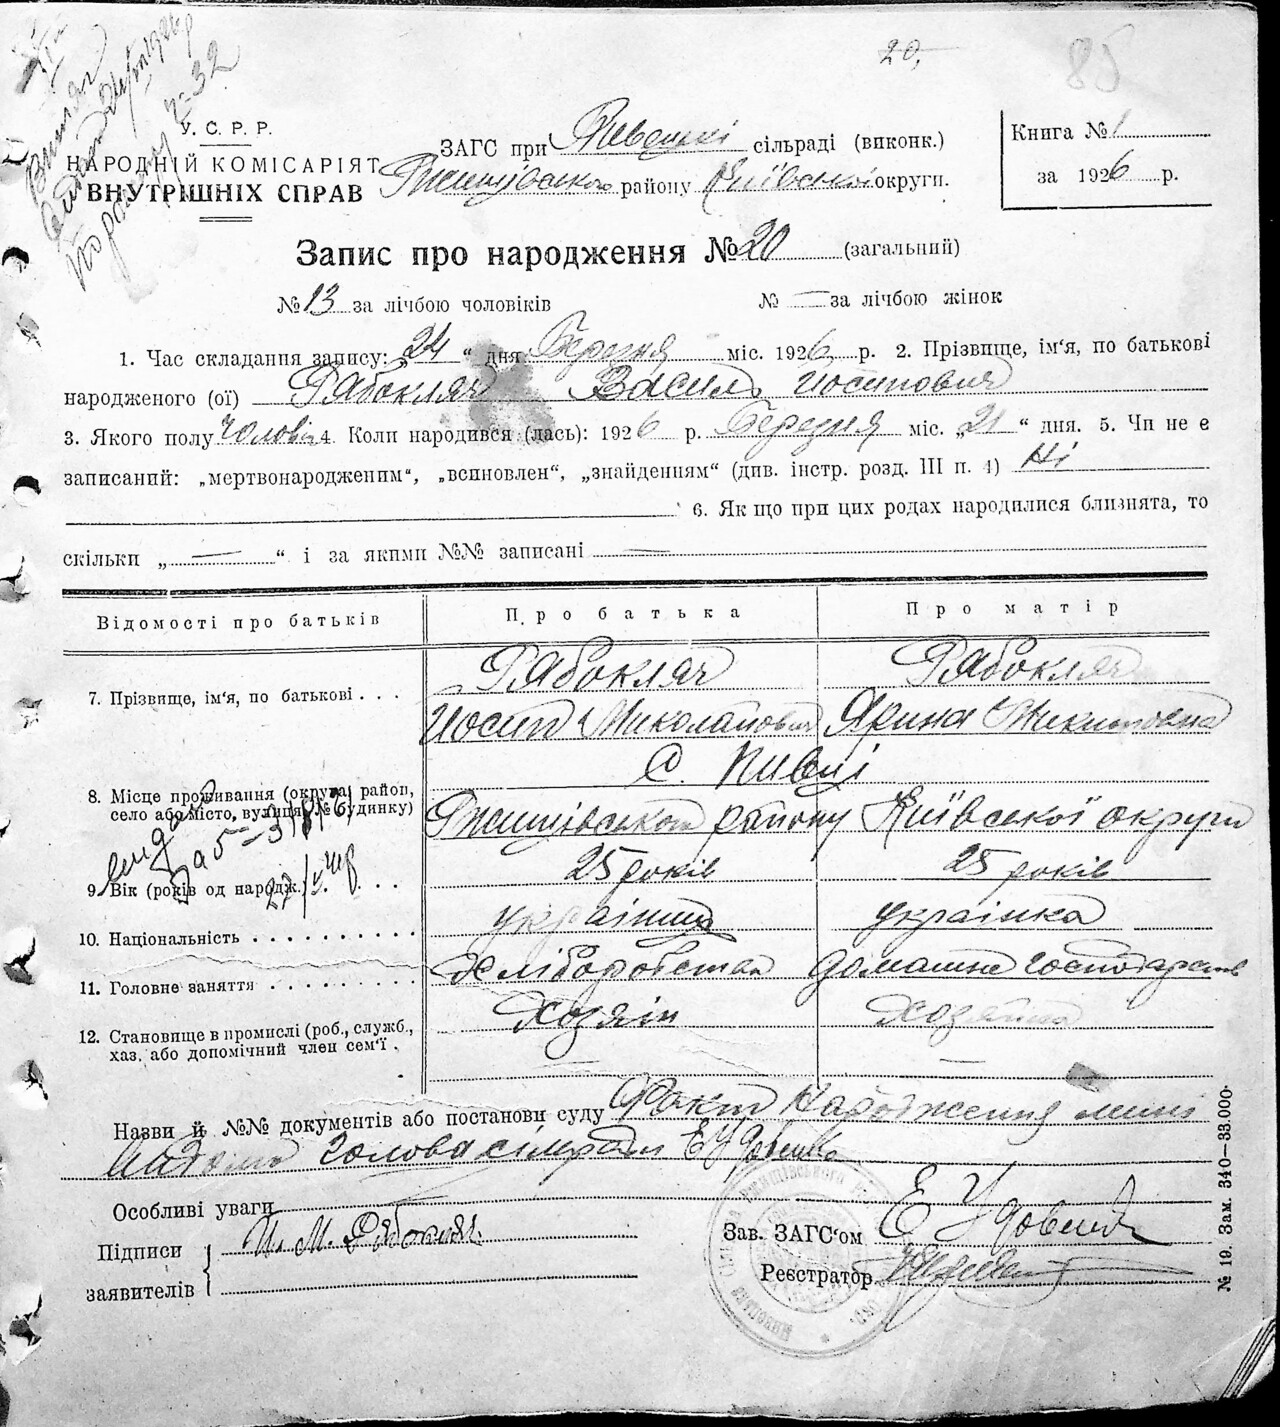 20,
85
У. С. Р. Р.
НАРОДНІЙ КОМІСАРІЯТ
ВНУТРІШНІХ СПРАВ
ЗАГС при Пивецькі сільраді (виконк.)
Ржищівського району Київської округи.
Книга № 1
за 1926 р.
Запис про народження № 20 (загальний)
№ 13 за лічбою чоловіків № — за лічбою жінок
1. Час складання запису: „24“ дня Березня міс. 1926 р. 2. Прізвище, ім'я, по батькові
народженого (ої) Рябокляч Василь Иосипович
3. Якого полу Чоловіч 4. Коли народився (лась): 1926 р. Березня міс. „21“ дня. 5. Чи не е
записаний: „мертвонародженим“, „всиновлен“, „знайденням“ (див. інстр. розд. III п. 4) Ні
6. Як що при цих родах народилися близнята, то
скільки „ — “ і за якими №№ записані —
Відомості про батьків Про батька Про матір
7. Прізвище, ім'я, по батькові . . . Рябокляч Рябокляч
Иосип Миколайович Ярина Микитовна
с. Пивці
8. Місце проживання (округа, район,
село або місто, вулиця, № будинку) Ржищівського району Київської округи
9. Вік (років од народж.) . . . 25 років 25 років
10. Національність . . . . . . . . . . українець українка
11. Головне заняття . . . . . . . . . Хліборобство домашне господарств
12. Становище в промислі (роб., служб.,
хаз. або допомічний член сем'ї . Хозяін Хозяйка
—
Назви й №№ документів або постанови суду Факт народження мині
відомо Голова сільради Е Удовенко
Особливі уваги
Підписи
заявителів И. М. Рябокляч
Зав. ЗАГС'ом Е Удовенко
Реєстратор
№ 19. Зам. 340—33.000.